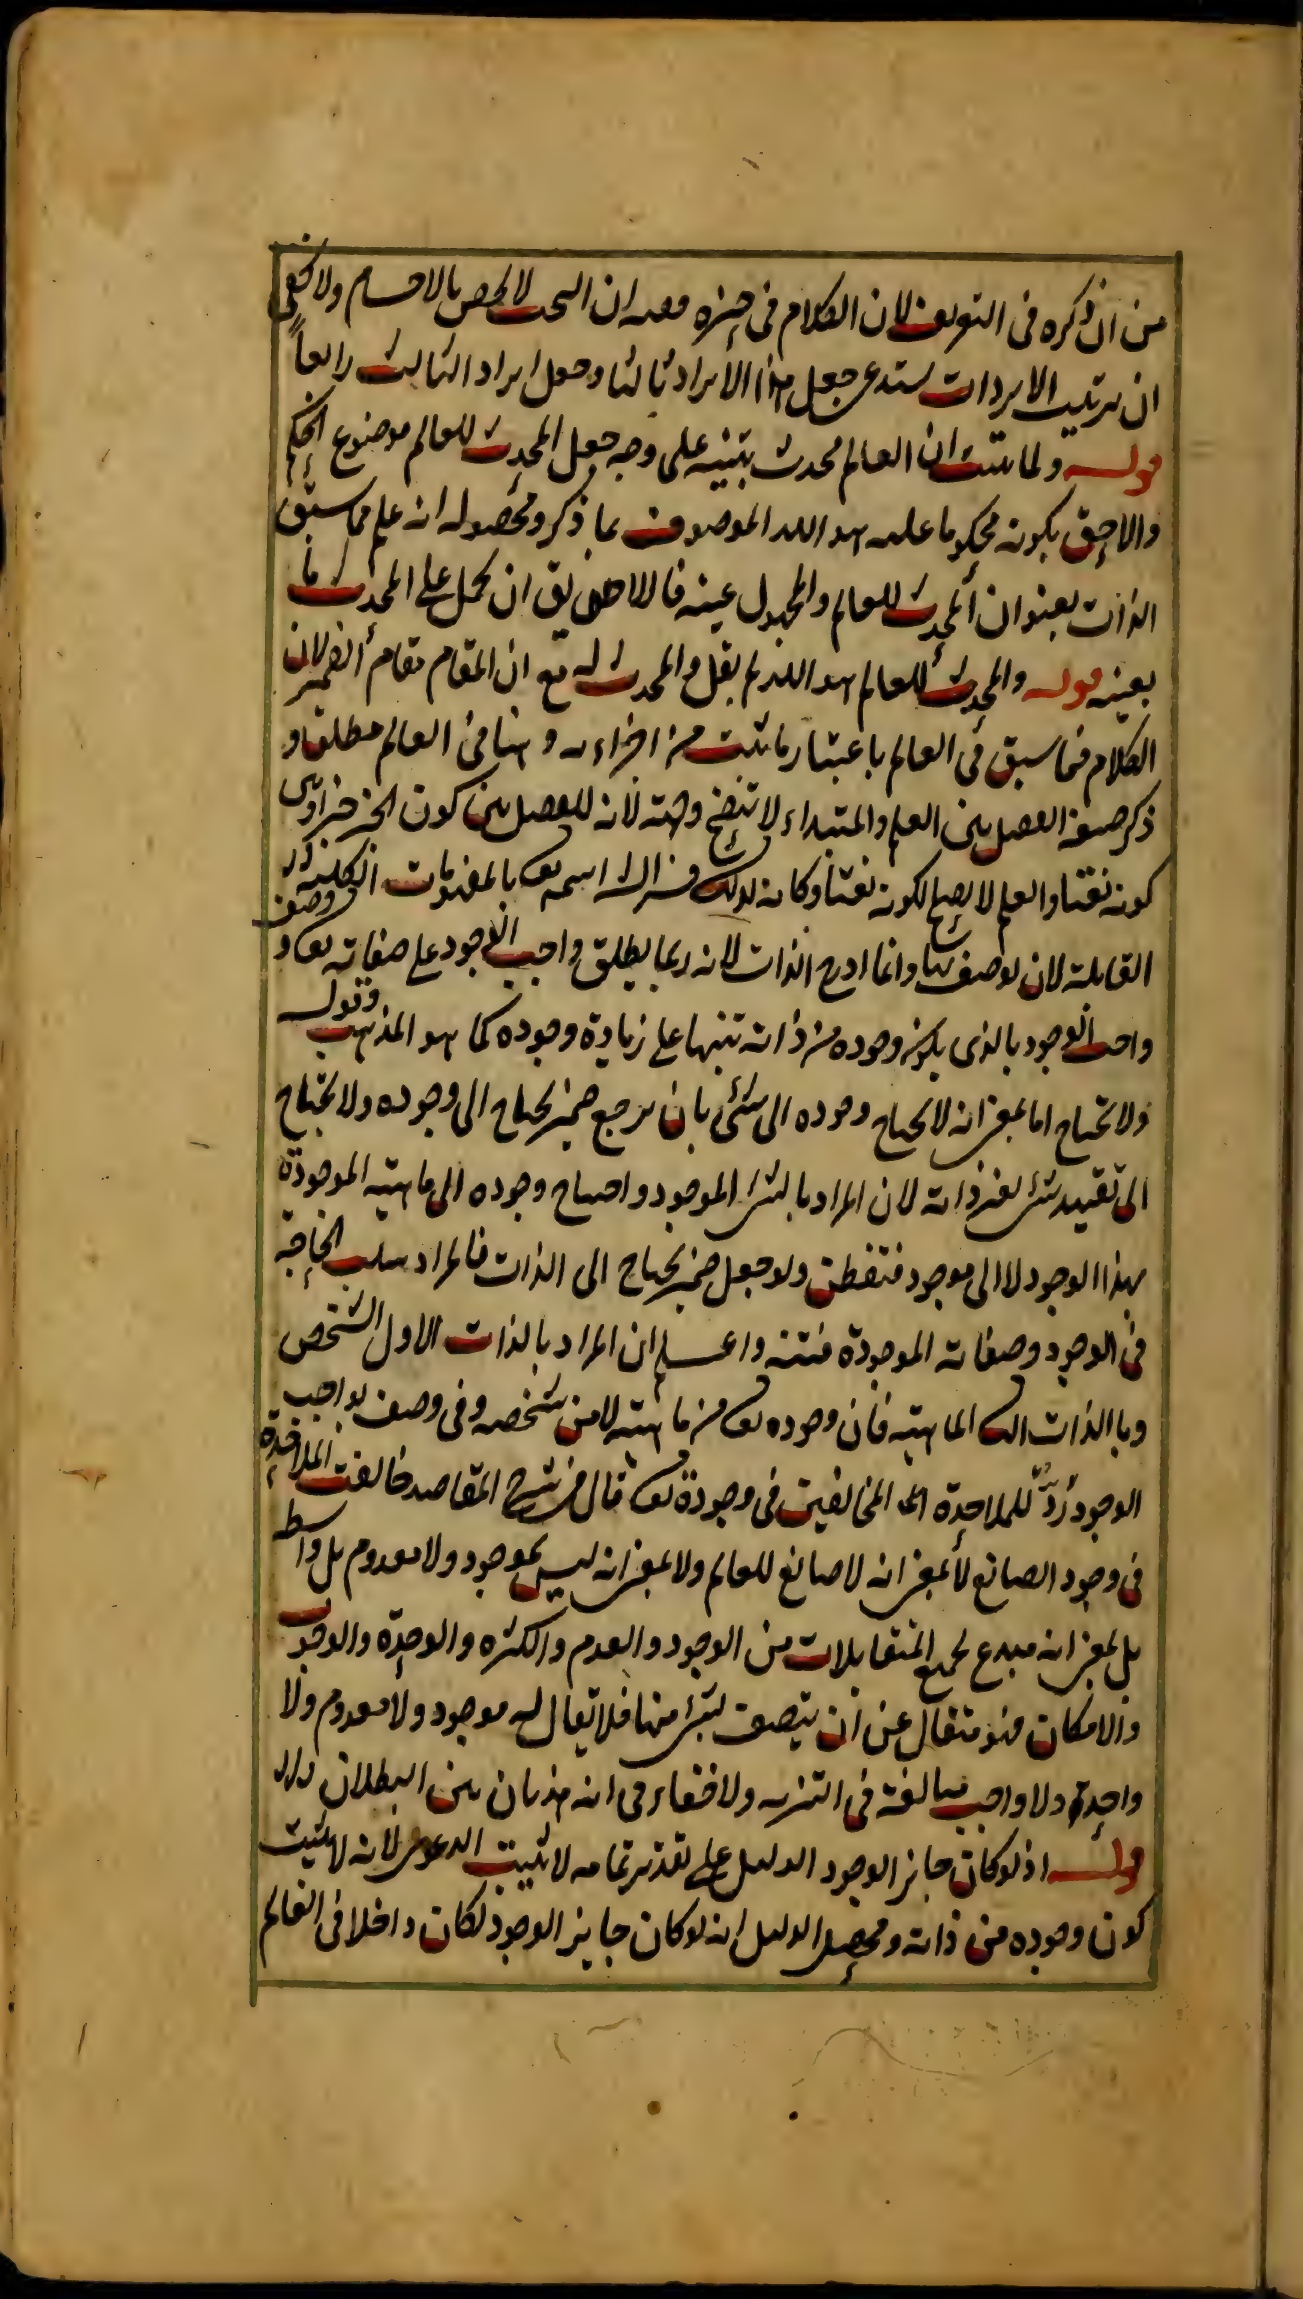 من ان ذكره في التعريف لان الكلام في حيزه وفيه ان البحث لا يخص بالاجسام ولا يخفى
ان ترتيب الايرادات يستدعي جعل هذا الايراد ثالثا وجعل ايراد الثالث رابعاً
قوله ولما ثبت ان العالم محدث تنبيه على وجه جعل المحدث للعالم موضوع الحكم
والاحق بكونه محكوما عليه هو الله الموصوف بما ذكر ومحصوله انه علم مما سبق
الذات بعنوان المحدث للعالم والمجهول عينه فاللايق ان يحمل على المحدث ما
بعينه قوله والمحدث للعالم هو الله لم يقل والمحدث له مع ان المقام مقام الضمير لان
الكلام فيما سبق في العالم باعتبار ما ثبت من اجزاءه وهنا في العالم مطلقا و
ذكر صيغة الفصل بين العلم والمبتداء لا تتضح وجهته لانه للفصل بين كون الخبر خبرا وبين
كونه نعتا والعلم لا يصلح لكونه نعتا وكانه لذلك فسر الله اسمه تع بالمفهومات الكلية
القابلة لان يوصف بها وانما ادرج الذات لانه ربما يطلق واجب الوجود على صفاته تع و وصف
واجب الوجود بالذي يكون وجوده من ذاته تنبيها على زيادة وجوده كما هو المذهب وقوله
ولا يحتاج اما بمعنى انه لا يحتاج وجوده الى شئ بان يرجع ضمير يحتاج الى وجوده ولا يحتاج
الى تقييد شئ بغير ذاته لان المراد بالشئ الموجود واحتياج وجوده الى ماهيته الموجودة
بهذا الوجود لا الى موجود فتفطن ولو جعل ضمير يحتاج الى الذات فالمراد سلب الحاجة
في الوجود وصفاته الموجودة فتنبه واعلم ان المراد بالذات الاول الشخص
وبالذات الثاني الماهية فان وجوده تع من ماهيته لا من شخصه وفي وصف بواجب
الوجود ردّ للملاحدة المخالفين في وجوده تع قال في شرح المقاصد خالفت الملاحدة
في وجود الصانع لا بمعنى انه لا صانع للعالم ولا بمعنى انه ليس بموجود ولا معدوم بل واسطة
بل بمعنى انه مبدع لجميع المتقابلات من الوجود والعدم والكثرة والوحدة والوجوب
والامكان فهو متعال عن ان يتصف بشئ منها فلا يقال له موجود ولا معدوم ولا
واحد ولا واجب مبالغة في التنزيه ولا خفاء في انه هذيان بين البطلان
قوله اذ لو كان جايز الوجود الدليل على تقدير تمامه لا يثبت الدعوى لانه لا يثبت
كون وجوده من ذاته ومحصل الدليل انه لو كان جايز الوجود لكان داخلا في العالم